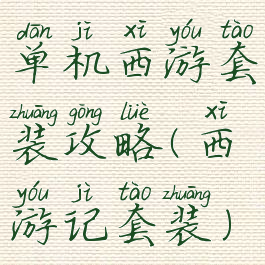 dān jī xī yóu tào
单机西游套
zhuāng gōng lüè xī
装攻略(西
yóu jì tào zhuāng
游记套装)